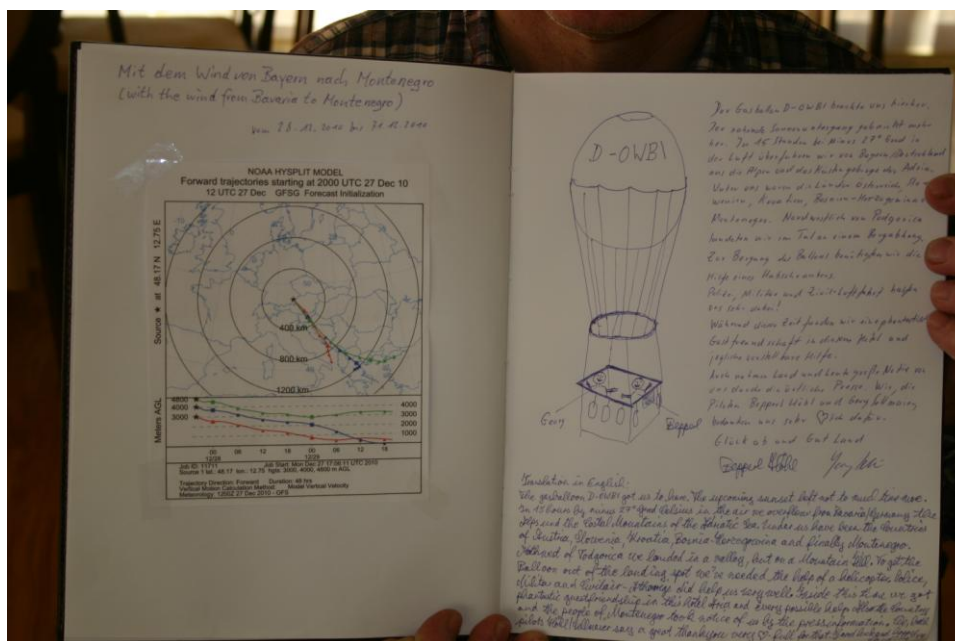 Mit dem Wind von Bayern nach Montenegro
(with the wind from Bavaria to Montenegro)
vom 28.12.2010 bis 31.12.2010
NOAA HYSPLIT MODEL
Forward trajectories starting at 2000 UTC 27 Dec 10
12 UTC 27 Dec GFSG Forecast Initialization
Source ★ at 48.17 N 12.75 E
400 km
800 km
1200 km
Meters AGL
4800
4000
3000
4000
3000
2000
1000
00 06 12 18 00 06 12 18
12/28 12/29
Job ID: 11711 Job Start: Mon Dec 27 17:06:11 UTC 2010
Source 1 lat.: 48.17 lon.: 12.75 hgts: 3000, 4000, 4800 m AGL
Trajectory Direction: Forward Duration: 48 hrs
Vertical Motion Calculation Method: Model Vertical Velocity
Meteorology: 1200Z 27 Dec 2010 - GFS
D-OWBI
Georg
Beppel
Der Gasballon D-OWBI brachte uns hierher.
Der nahende Sonnenuntergang gab nicht mehr
her. In 15 Stunden bei Minus 27° Grad in
der Luft überfuhren wir von Bayern/Deutschland
aus die Alpen und das Küstengebirge der Adria.
Unter uns waren die Länder Österreich, Slo-
wenien, Kroatien, Bosnien-Herzegowina
Montenegro. Nordwestlich von Podgorica
landeten wir im Tal an einem Berghang.
Zur Bergung des Ballons benötigten wir die
Hilfe eines Hubschraubers.
Polizei, Militär und Zivil-Luftfahrt halfen
uns sehr dabei!
Während dieser Zeit fanden wir eine phantastische
Gastfreundschaft in diesem Hotel und
jegliche vorstellbare Hilfe.
Auch nahmen Land und Leute große Notiz von
uns durch die örtliche Presse. Wir, die
Piloten Beppel Wöhl und Georg
bedanken uns sehr ♡lich dafür.
Glück ab und Gut Land
Translation in English:
The gasballoon D-OWBI got us to here. The upcoming sunset left not to much time more.
In 15 hours by minus 27° Grad Celsius in the air we overflew from Bavaria/Germany the
Alps and the Costal Mountains of the Adriatic Sea. Under us have been the Countries
of Austria, Slowenia, Kroatia, Bosnia-Hercegovina and finally Montenegro.
of Podgorica we landed in a valley, but on a Mountain Hill. To get the
Balloon out of the landing spot we've needed the help of a helicopter. Police,
Militar and Civilair- did help us very well. Inside this time we got
phantastic guestfriendship in this Hotel Area and every possible help. Also the Country
and the people of Montenegro took notice of us by the pressinformation. We, both
pilots say a great thankyou very ♡